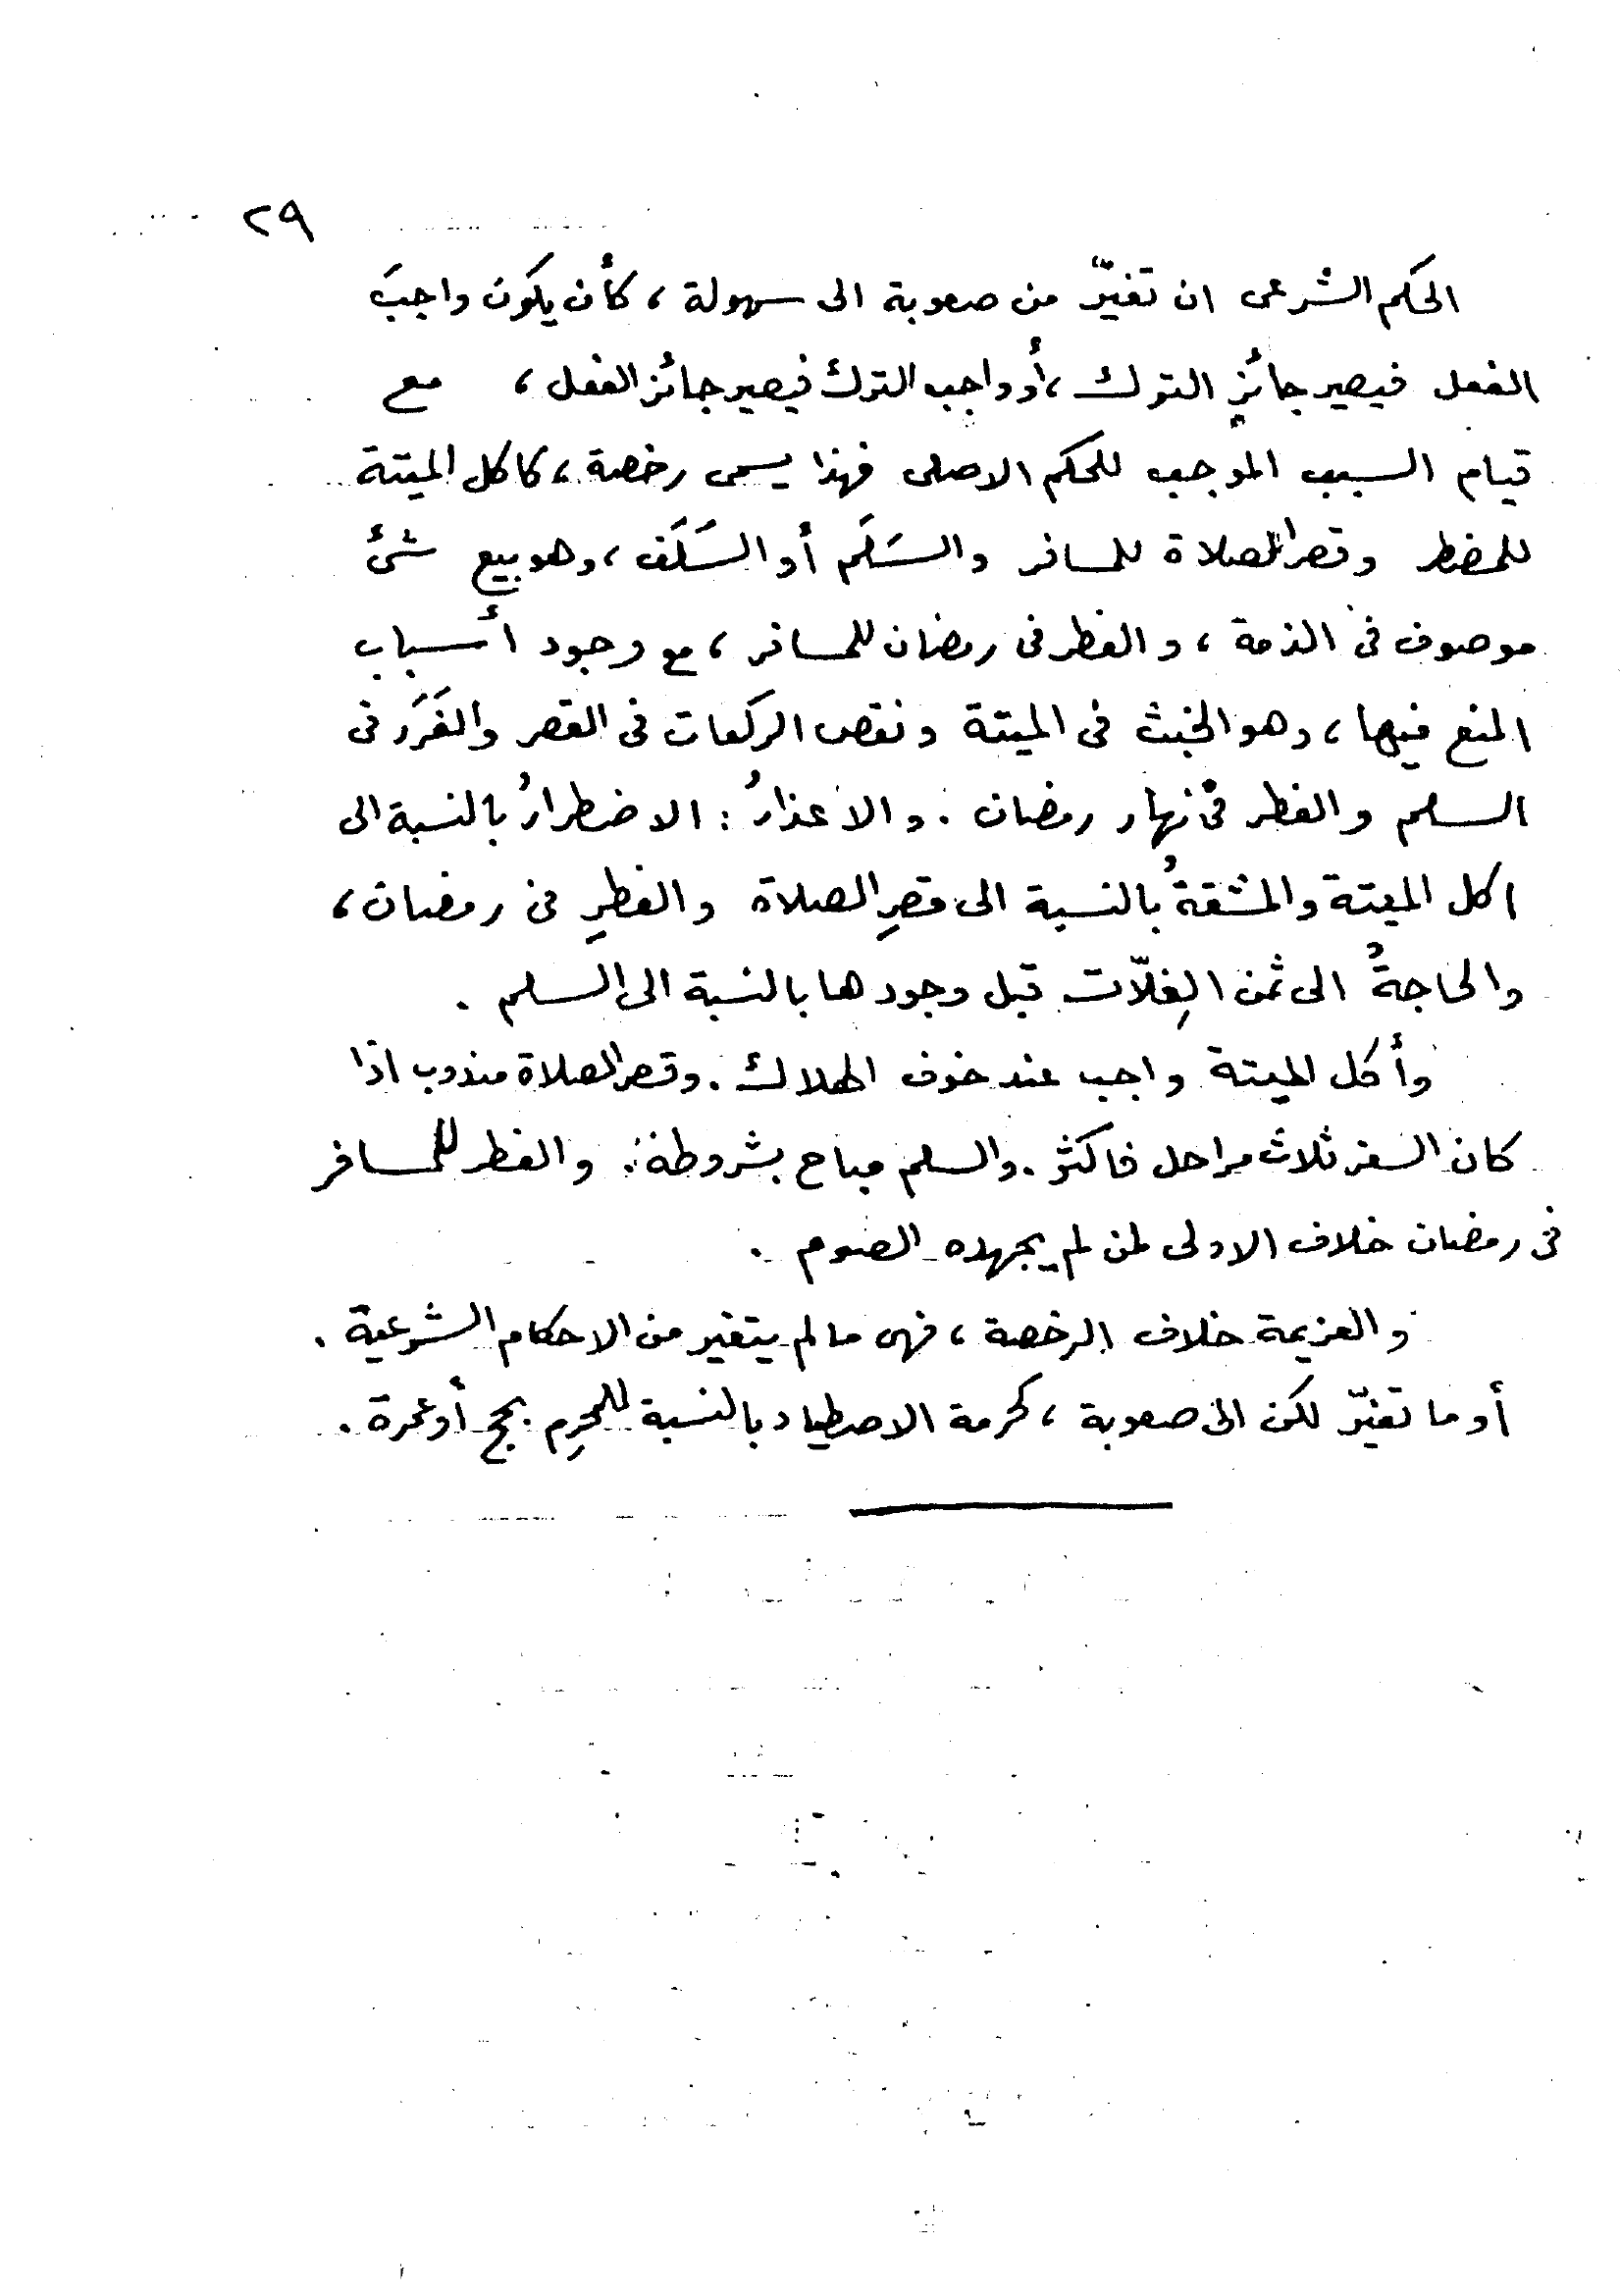 ٢٩
الحكم الشرعى ان تغيّر من صعوبة الى سهولة ، كأن يكون واجبَ
الفعل فيصير جائزِ الترك ، أو واجب الترك فيصير جائز الفعل ، مع
قيام السبب الموجب للحكم الاصلى فهذا يسمى رخصة ، كاكل الميتة
للمضطر وقصر الصلاة للمسافر والسَلَم أو السَلَف ، وهو بيع شئ
موصوف فى الذمة ، والفطر فى رمضان للمسافر ، مع وجود أسباب
المنع فيها ، وهو الخبث فى الميتة ونقص الركعات فى القصر والغَرَر فى
السلم والفطر فى نهار رمضان . والاعذارُ : الاضطرارُ بالنسبة الى
اكل الميتة والمشقةُ بالنسبة الى قصرِ الصلاة والفطرِ فى رمضان ،
والحاجةُ الى ثمن الغِلّات قبل وجودها بالنسبة الى السلم .
وأكل الميتة واجب عند خوف الهلاك . وقصر الصلاة مندوب اذا
كان السفر ثلاث مراحل فاكثر . والسلم مباح بشروطه . والفطر للمسافر
فى رمضان خلاف الاولى لمن لم يجهده الصوم .
والعزيمة خلاف الرخصة ، فهى مالم يتغير من الاحكام الشرعية .
أو ما تغيّر لكن الى صعوبة ، كحرمة الاصطياد بالنسبة للمحرِم بحج أو عمرة .